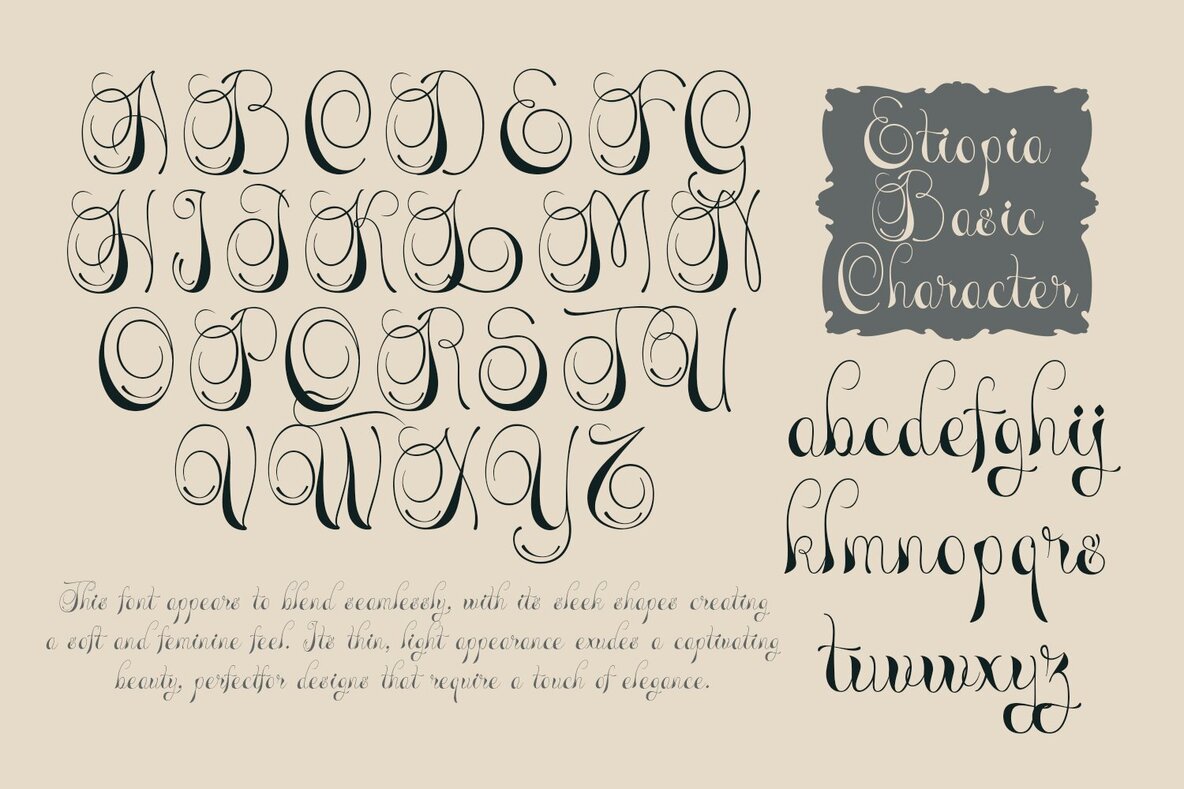 ABCDEFG
HIJKLMN
OPQRSTU
VWXYZ
Etiopia
Basic
Character
abcdefghij
klmnopqrs
tuvwxyz
This font appears to blend seamlessly, with its sleek shapes creating
a soft and feminine feel. Its thin, light appearance exudes a captivating
beauty, perfectfor designs that require a touch of elegance.